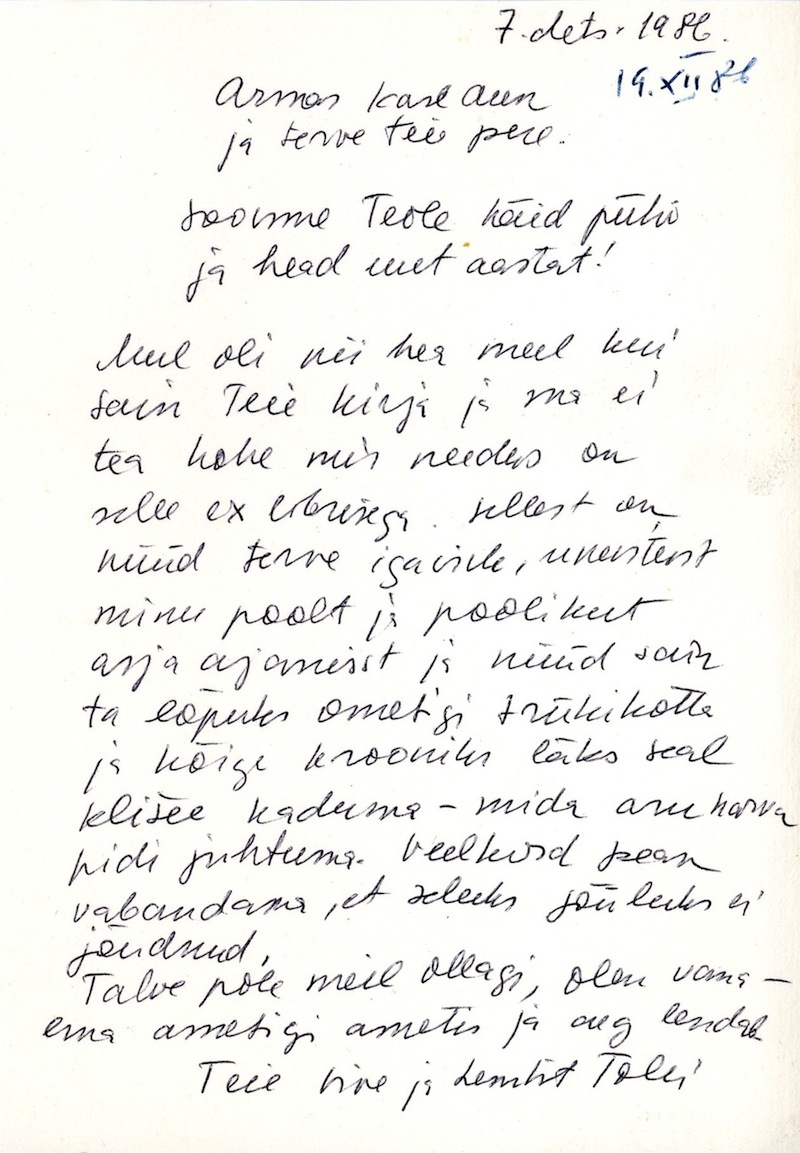 7. dets. 1986.
19.XII 86
Armas Karl Aun
ja terve teie pere.
Soovime Teile häid pühi
ja head uut aastat!
Mul oli nii hea meel kui
sain Teie kirja ja ma ei
tea kohe mis needus on
selle ex librisega. Sellest on
nüüd terve igavik, unustust
minu poolt ja poolikut
asja ajamisst ja nüüd sain
ta lõpuks ometigi trükikotta
ja kõige krooniks läks seal
klišee kaduma – mida aru harva
pidi juhtuma. Veelkord pean
vabandama, et seleks jõuluks ei
jõudnud,
Talve pole meil ollagi, olen vana-
ema ametigi ametis ja aeg lendab
Teie Vive ja Tolli